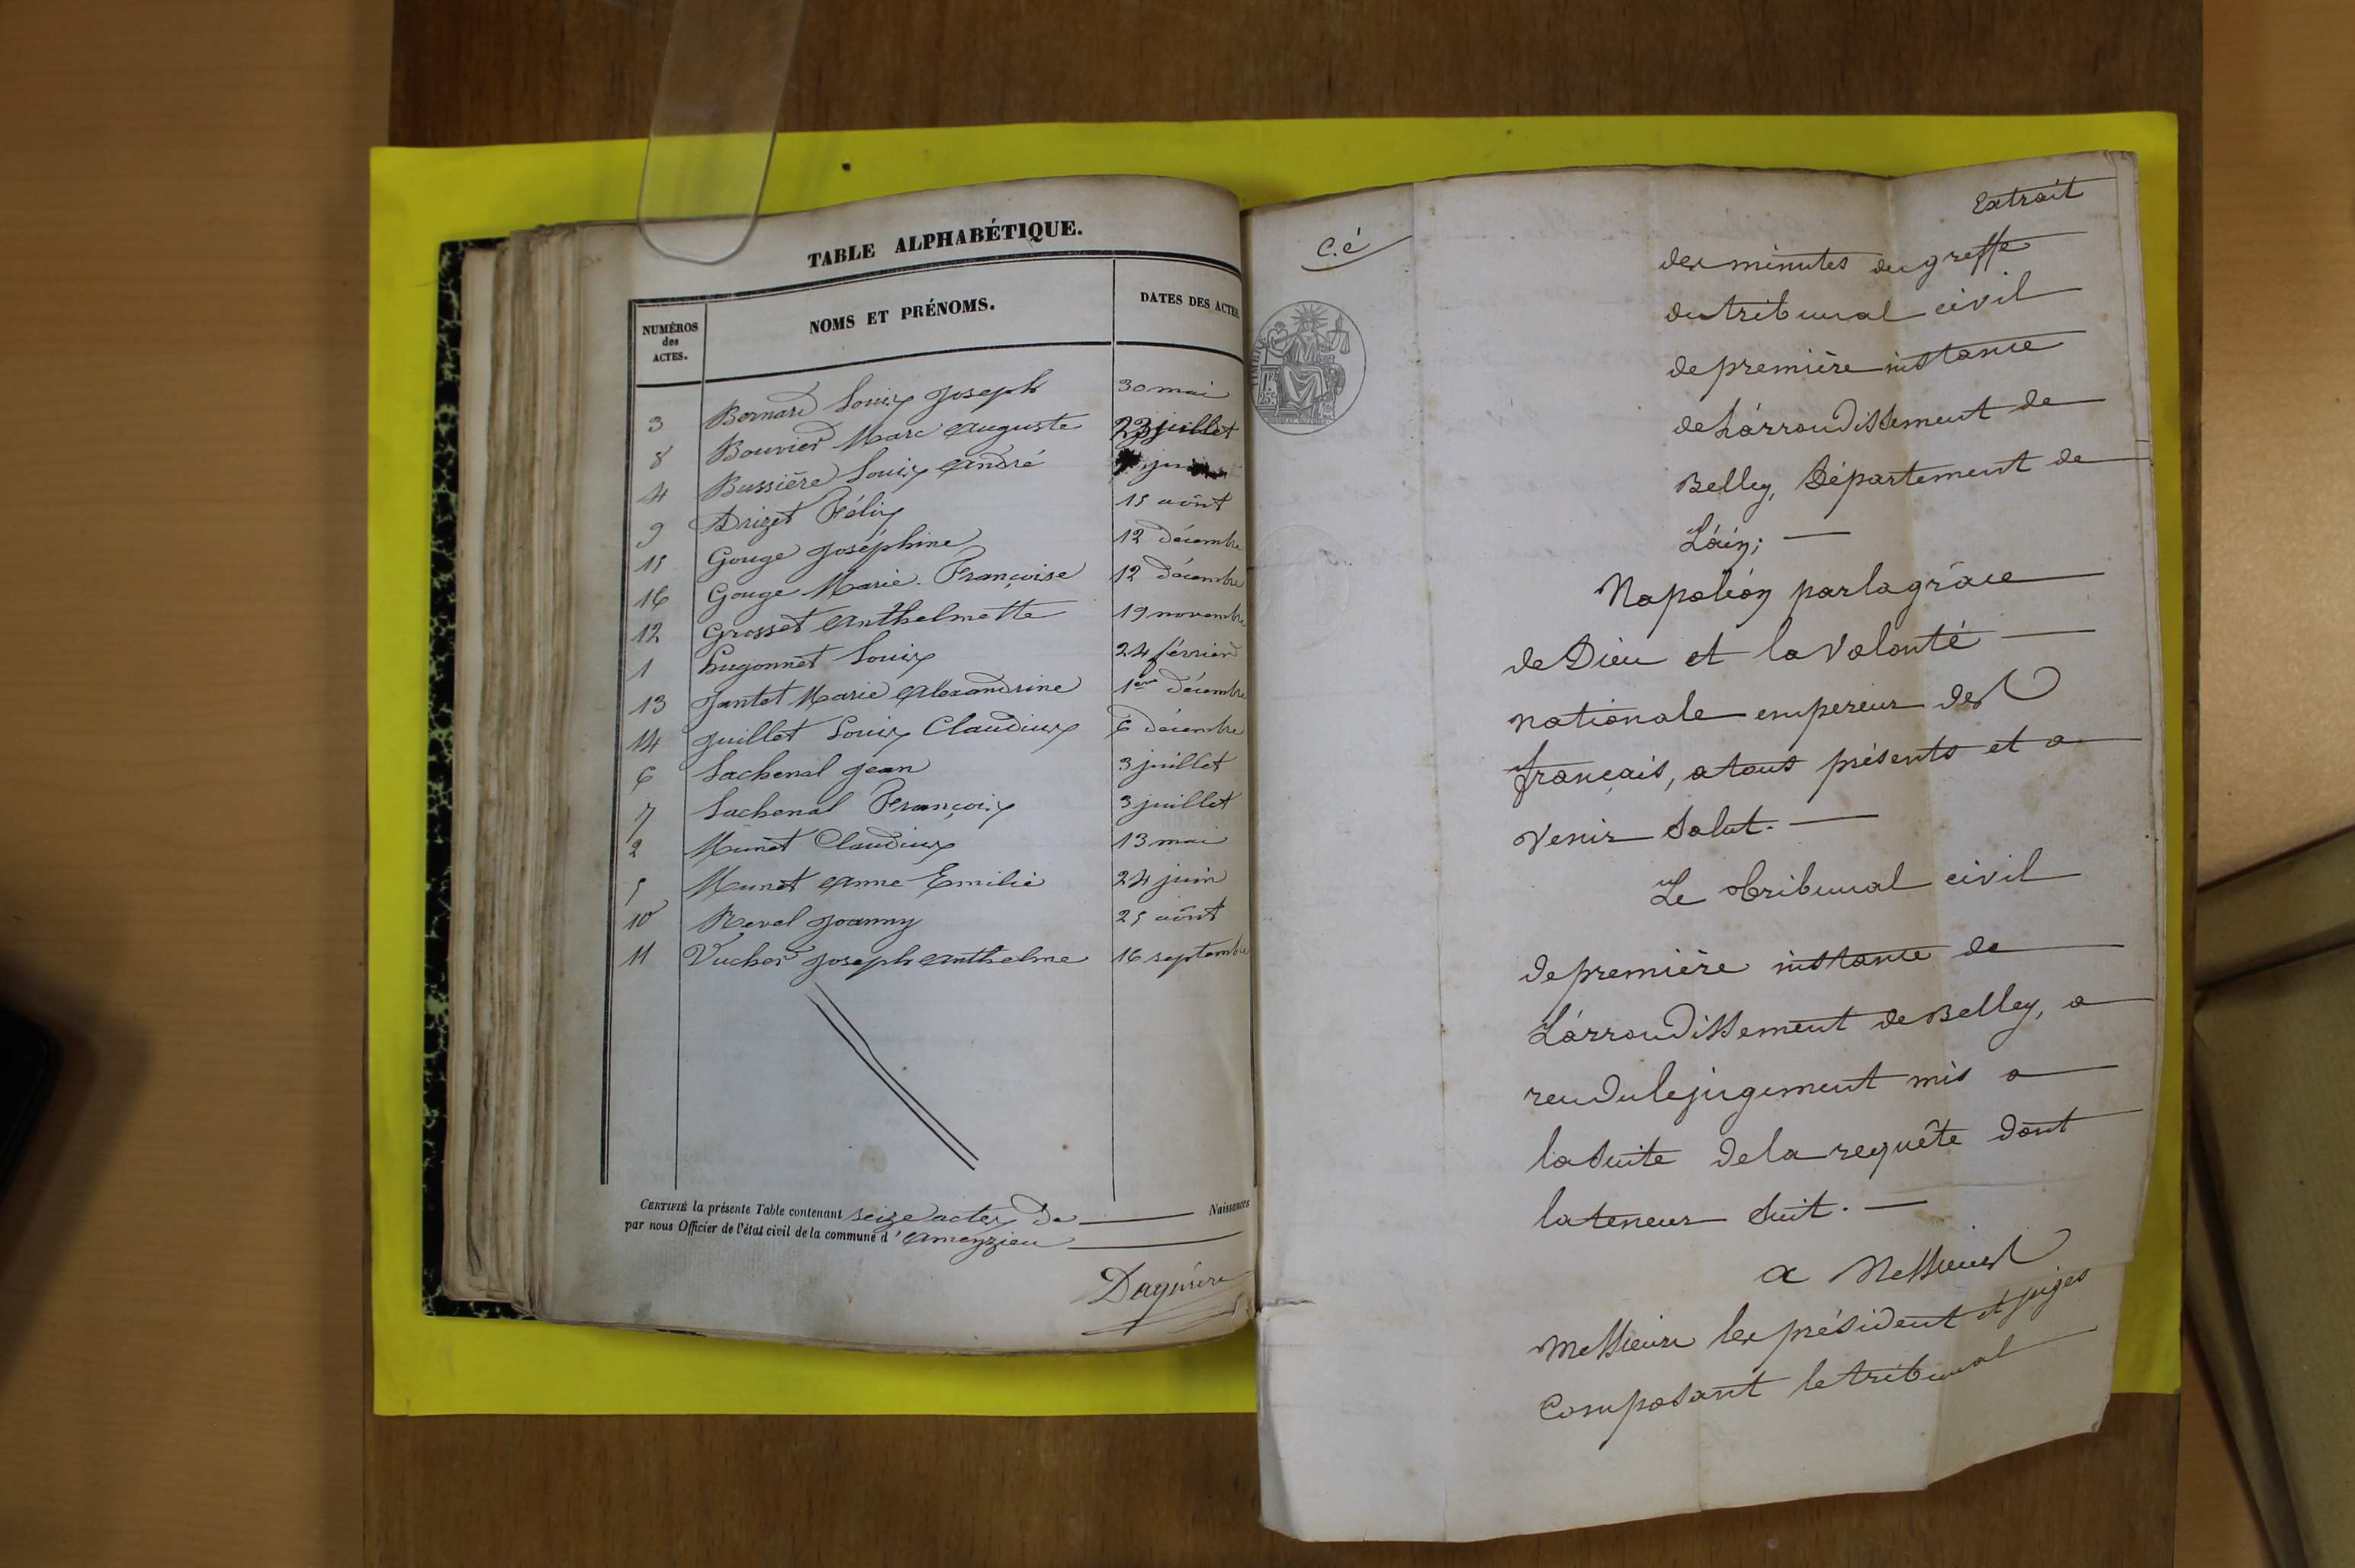 TABLE ALPHABÉTIQUE.
NUMÉROS des ACTES. NOMS ET PRÉNOMS. DATES DES ACTES.
3 Bernard Louis Joseph 30 mai
8 Bouvier Marc Auguste 23 juillet
4 Bussière Louis André juin
9 Drizet Félix 15 août
15 Gouge Joséphine 12 décembre
16 Gouge Marie Françoise 12 décembre
12 Grosset Anthelmette 19 novembre
1 hugonnet Louis 24 février
13 Jantet Marie Alexandrine 1er décembre
14 Juillet Louis Claudius 6 décembre
6 Lachenal Jean 3 juillet
7 Lachenal François 3 juillet
2 Munet Claudius 13 mai
5 Munet Anne Emilie 24 juin
10 Revel Joanny 25 août
11 Vucher Joseph Anthelme 16 septembre
CERTIFIÉ la présente Table contenant seize actes de Naissances
par nous Officier de l'état civil de la commune d'Ameyzieu
C.é
TIMBRE
Extrait
des minutes du greffe
du tribunal civil
de première instance
de L'arrondissement de
Belley, Département de
L'ain; —
Napoléon par la grâce
de Dieu et la volonté —
nationale empereur des
français, a tous présents et a
venir Salut. —
Le Tribunal civil
de première instance de
L'arrondissement de Belley, a
rendu le jugement mis a
la suite de la requête dont
la teneur suit. —
a Messieurs
Messieurs les président et juges
Composant le tribunal